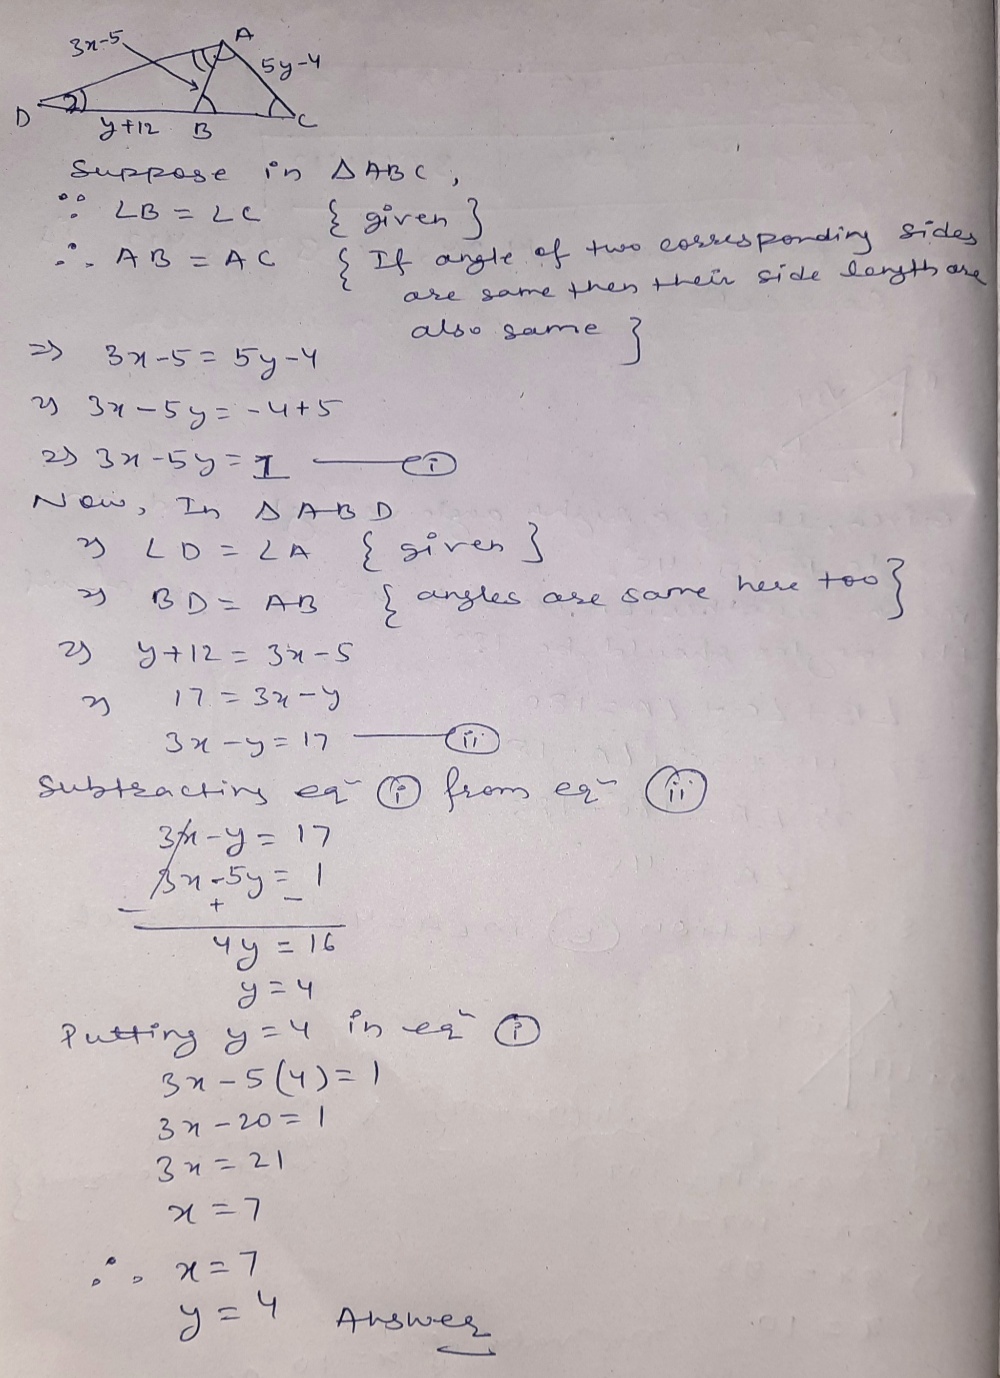 3x-5
A
5y-4
D
y+12 B C
Suppose in △ABC,
∵ ∠B = ∠C { given }
∴ AB = AC { If angle of two corresponding sides
are same then their side length are
also same }
=> 3x-5 = 5y-4
=> 3x-5y = -4+5
=> 3x-5y = 1 ——— (i)
Now, In △ABD
=> ∠D = ∠A { given }
=> BD = AB { angles are same here too }
=> y+12 = 3x-5
=> 17 = 3x-y
3x-y = 17 ——— (ii)
Subtracting eqⁿ (i) from eqⁿ (ii)
3x-y = 17
3x-5y = 1
- + -
4y = 16
y = 4
Putting y=4 in eqⁿ (i)
3x-5(4) = 1
3x-20 = 1
3x = 21
x = 7
∴ x = 7
y = 4 Answer